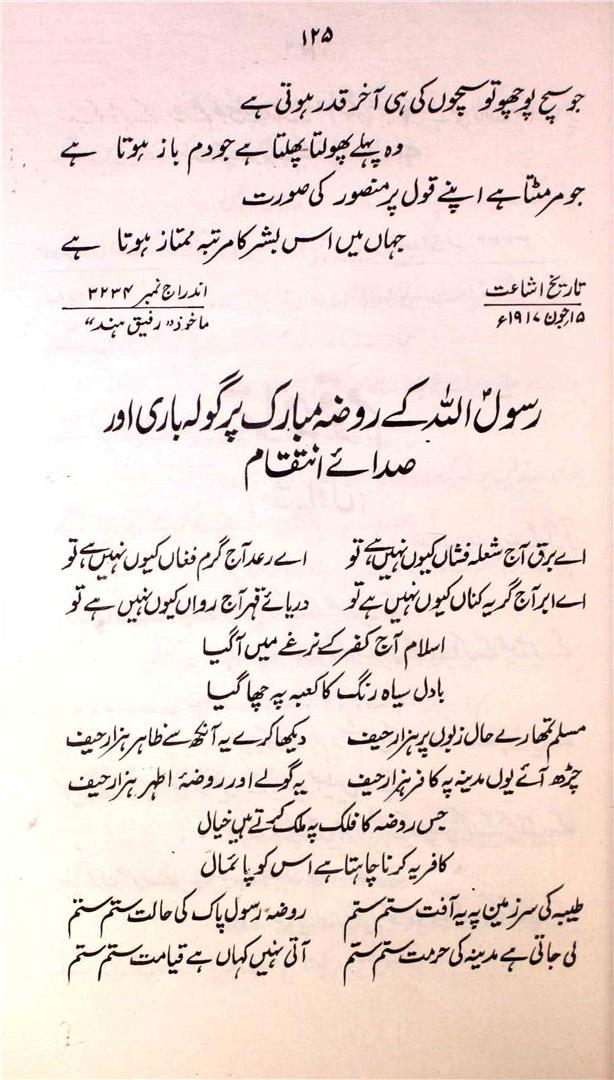 ۱۲۵
جو سچ پوچھو تو سچوں کی ہی آخر قدر ہوتی ہے
وہ پہلے پھولتا پھلتا ہے جو دم باز ہوتا ہے
جو مر مٹتا ہے اپنے قول پر منصور کی صورت
جہاں میں اس بشر کا مرتبہ ممتاز ہوتا ہے
تاریخ اشاعت اندراج نمبر ۳۲۳۴
۱۵؍جون ۱۹۱۷ء ماخوذ "رفیق ہند"
رسولؐ اللہ کے روضہ مبارک پر گولہ باری اور
صدائے انتقام
اے برق آج شعلہ فشاں کیوں نہیں ہے تو اے رعد آج گرم فغاں کیوں نہیں ہے تو
اے ابر آج گریہ کناں کیوں نہیں ہے تو دریائے قہر آج رواں کیوں نہیں ہے تو
اسلام آج کفر کے نرغے میں آ گیا
بادل سیاہ رنگ کا کعبہ پہ چھا گیا
مسلم تمھارے حال زبوں پر ہزار حیف دیکھا کرے یہ آنکھ سے ظاہر ہزار حیف
چڑھ آئے یوں مدینہ پہ کافر ہزار حیف یہ گولے اور روضۂ اطہر ہزار حیف
جس روضہ کا فلک پہ ملک کرتے ہیں خیال
کافر یہ کرنا چاہتا ہے اس کو پائمال
طیبہ کی سرزمین پہ یہ آفت ستم ستم روضہ رسول پاک کی حالت ستم ستم
لی جاتی ہے مدینہ کی حرمت ستم ستم آتی نہیں کہاں ہے قیامت ستم ستم